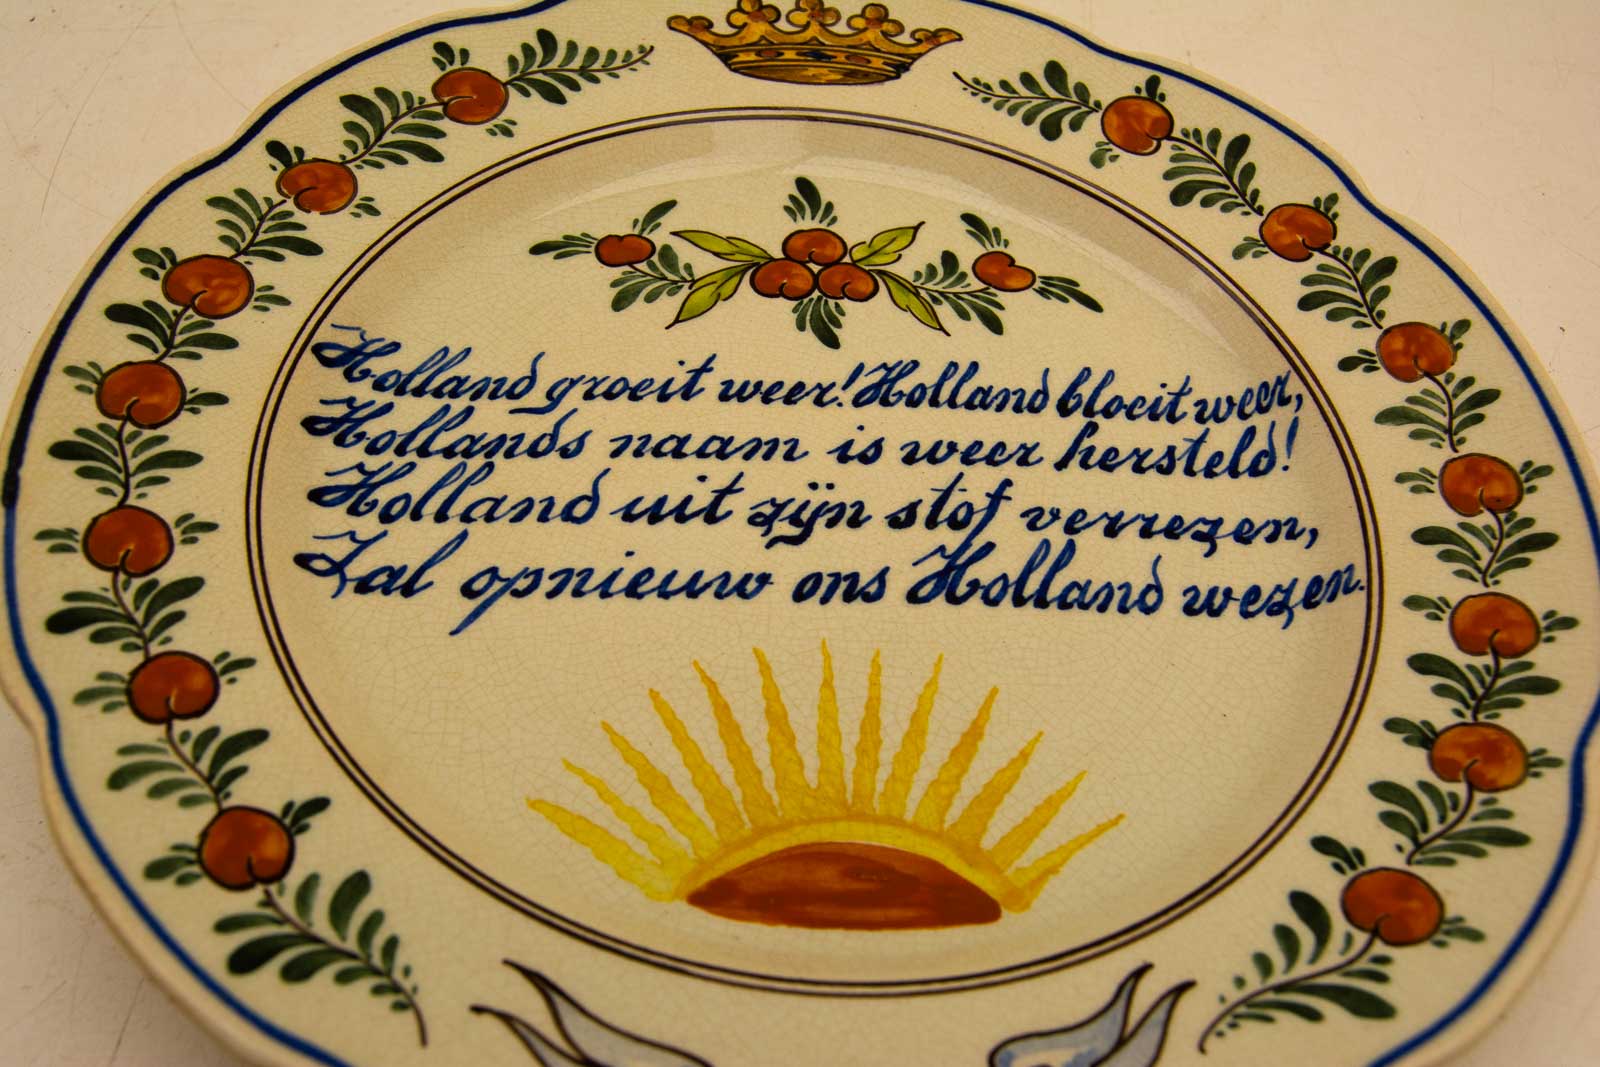 Holland groeit weer! Holland bloeit weer,
Hollands naam is weer hersteld!
Holland uit zijn stof verrezen,
Zal opnieuw ons Holland wezen.